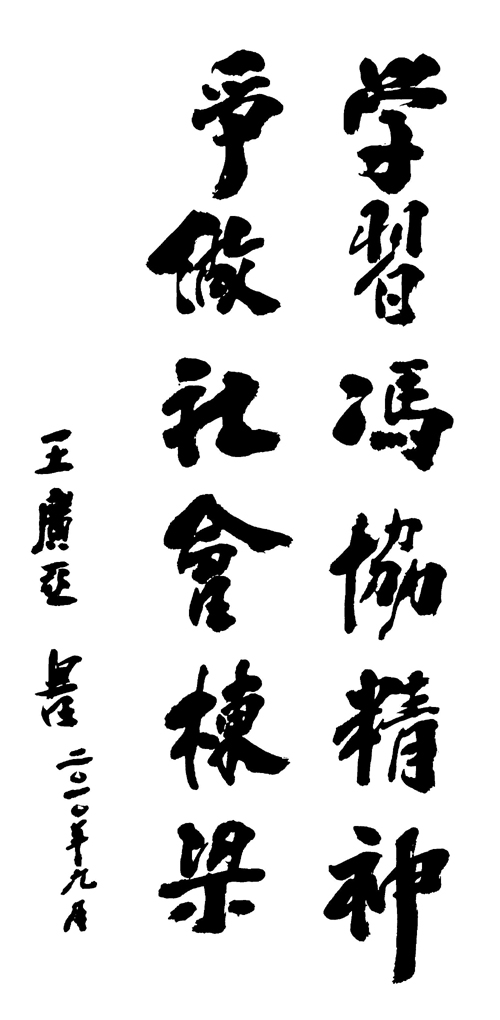 学習馮協精神
爭做社會棟梁
王廣亞 題
二〇一〇年九月